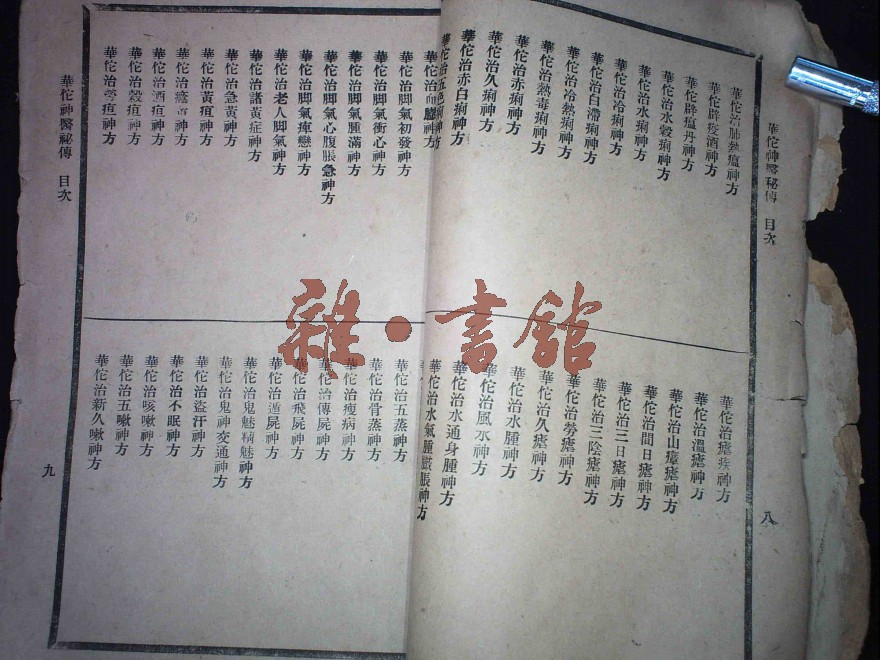 華佗神醫秘傳 目次
八
華佗治肺熱瘟神方
華佗辟疫酒神方
華佗辟瘟丹神方
華佗治水穀痢神方
華佗治水痢神方
華佗治冷痢神方
華佗治白滯痢神方
華佗治冷熱痢神方
華佗治熱毒痢神方
華佗治赤痢神方
華佗治久痢神方
華佗治赤白痢神方
華佗治五色痢神方
華佗治瘧疾神方
華佗治溫瘧神方
華佗治山瘴瘧神方
華佗治間日瘧神方
華佗治三日瘧神方
華佗治三陰瘧神方
華佗治勞瘧神方
華佗治久瘧神方
華佗治水腫神方
華佗治風水神方
華佗治水通身腫神方
華佗治水氣腫鼓脹神方
華佗治神方
華佗治腳氣初發神方
華佗治腳氣衝心神方
華佗治腳氣腫滿神方
華佗治腳氣心腹脹急神方
華佗治腳氣痺戀神方
華佗治老人腳氣神方
華佗治諸黃症神方
華佗治急黃神方
華佗治黃疸神方
華佗治神方
華佗治酒疸神方
華佗治穀疸神方
華佗治勞疸神方
華佗治五蒸神方
華佗治骨蒸神方
華佗治瘦病神方
華佗治傳屍神方
華佗治飛屍神方
華佗治遁屍神方
華佗治鬼魅精魅神方
華佗治鬼神交通神方
華佗治盜汗神方
華佗治不眠神方
華佗治咳嗽神方
華佗治五嗽神方
華佗治新久嗽神方
華佗神醫秘傳 目次
九
雜·書館